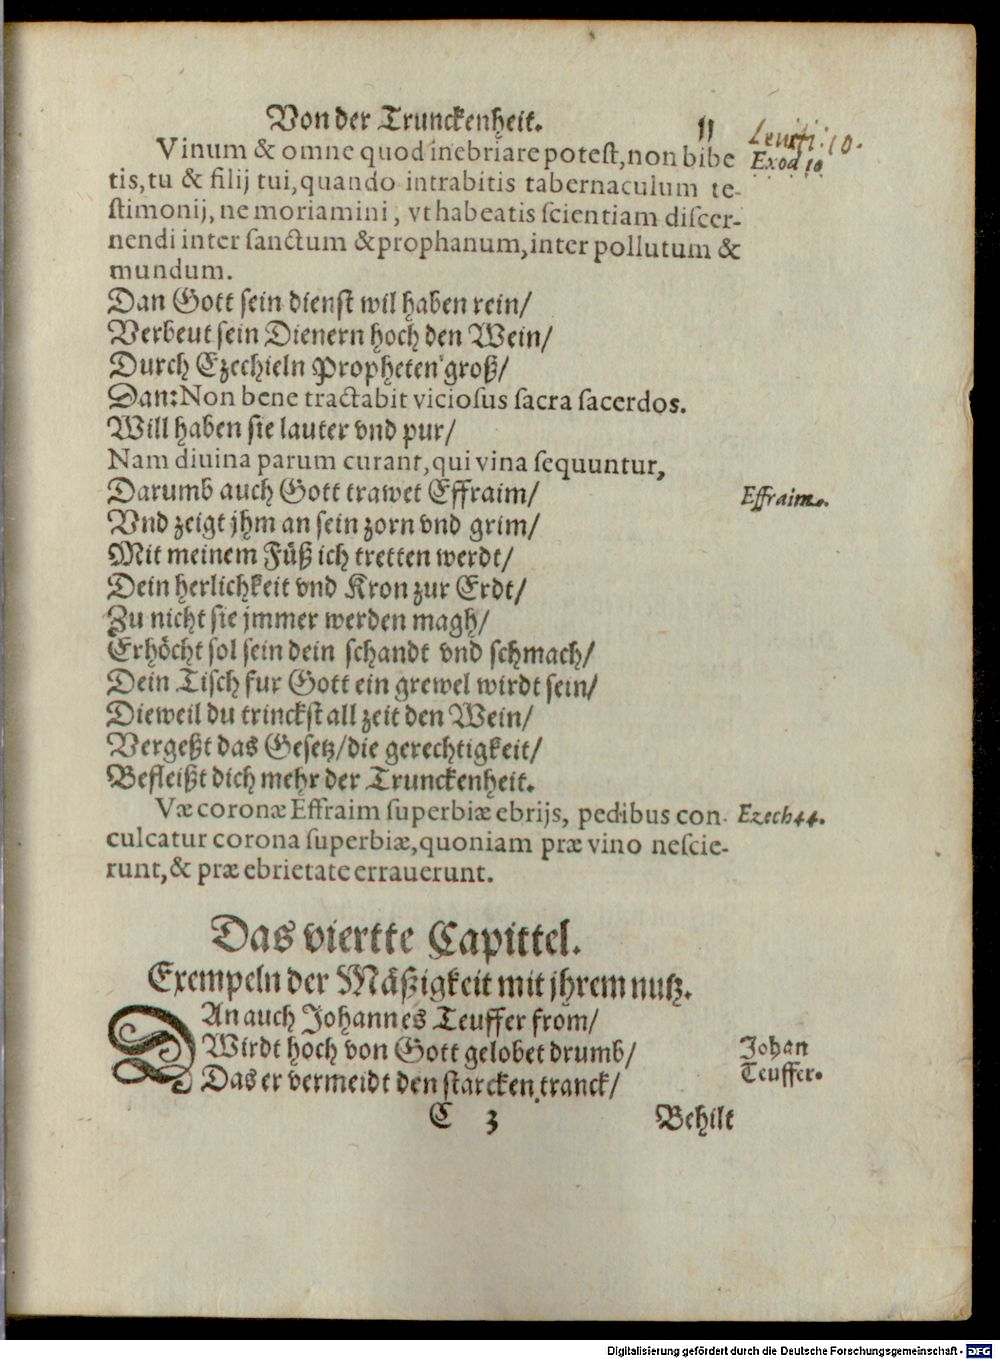 Von der Trunckenheit. 11
Leuiti: 10.
Vinum & omne quod inebriare potest, non bibe Exod 10
tis, tu & filij tui, quando intrabitis tabernaculum te-
stimonij, ne moriamini, vt habeatis scientiam discer-
nendi inter sanctum & prophanum, inter pollutum &
mundum.
Dan Gott sein dienst wil haben rein/
Verbeut sein Dienern hoch den Wein/
Durch Ezechieln Propheten groß/
Dan: Non bene tractabit viciosus sacra sacerdos.
Will haben sie lauter vnd pur/
Nam diuina parum curant, qui vina sequuntur,
Darumb auch Gott trawet Effraim/ Effraim.
Vnd zeigt jhm an sein zorn vnd grim/
Mit meinem Füß ich tretten werdt/
Dein herlichkeit vnd Kron zur Erdt/
Zu nicht sie jmmer werden magh/
Erhöcht sol sein dein schandt vnd schmach/
Dein Tisch fur Gott ein grewel wirdt sein/
Dieweil du trinckst all zeit den Wein/
Vergeßt das Gesetz/die gerechtigkeit/
Befleißt dich mehr der Trunckenheit.
Væ coronæ Effraim superbiæ ebrijs, pedibus con- Ezech 44.
culcatur corona superbiæ, quoniam præ vino nescie-
runt, & præ ebrietate errauerunt.
Das viertte Capittel.
Exempeln der Mäßigkeit mit jhrem nutz.
DAn auch Johannes Teuffer from/
Wirdt hoch von Gott gelobet drumb/ Johan
Das er vermeidt den starcken tranck/ Teuffer.
C 3 Behilt
Digitalisierung gefördert durch die Deutsche Forschungsgemeinschaft - DFG